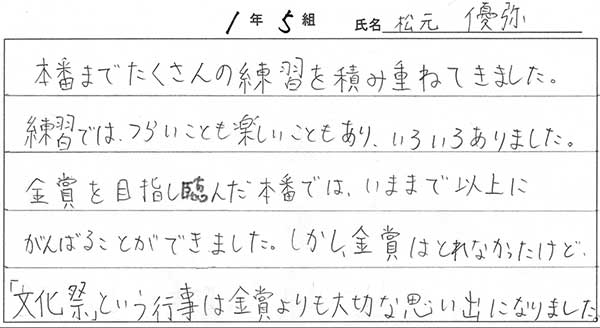 1年 5組 氏名 松元 優弥
本番までたくさんの練習を積み重ねてきました。
練習では、つらいことも楽しいこともあり、いろいろありました。
金賞を目指し臨んだ本番では、いままで以上に
がんばることができました。しかし、金賞はとれなかったけど、
「文化祭」という行事は金賞よりも大切な思い出になりました。